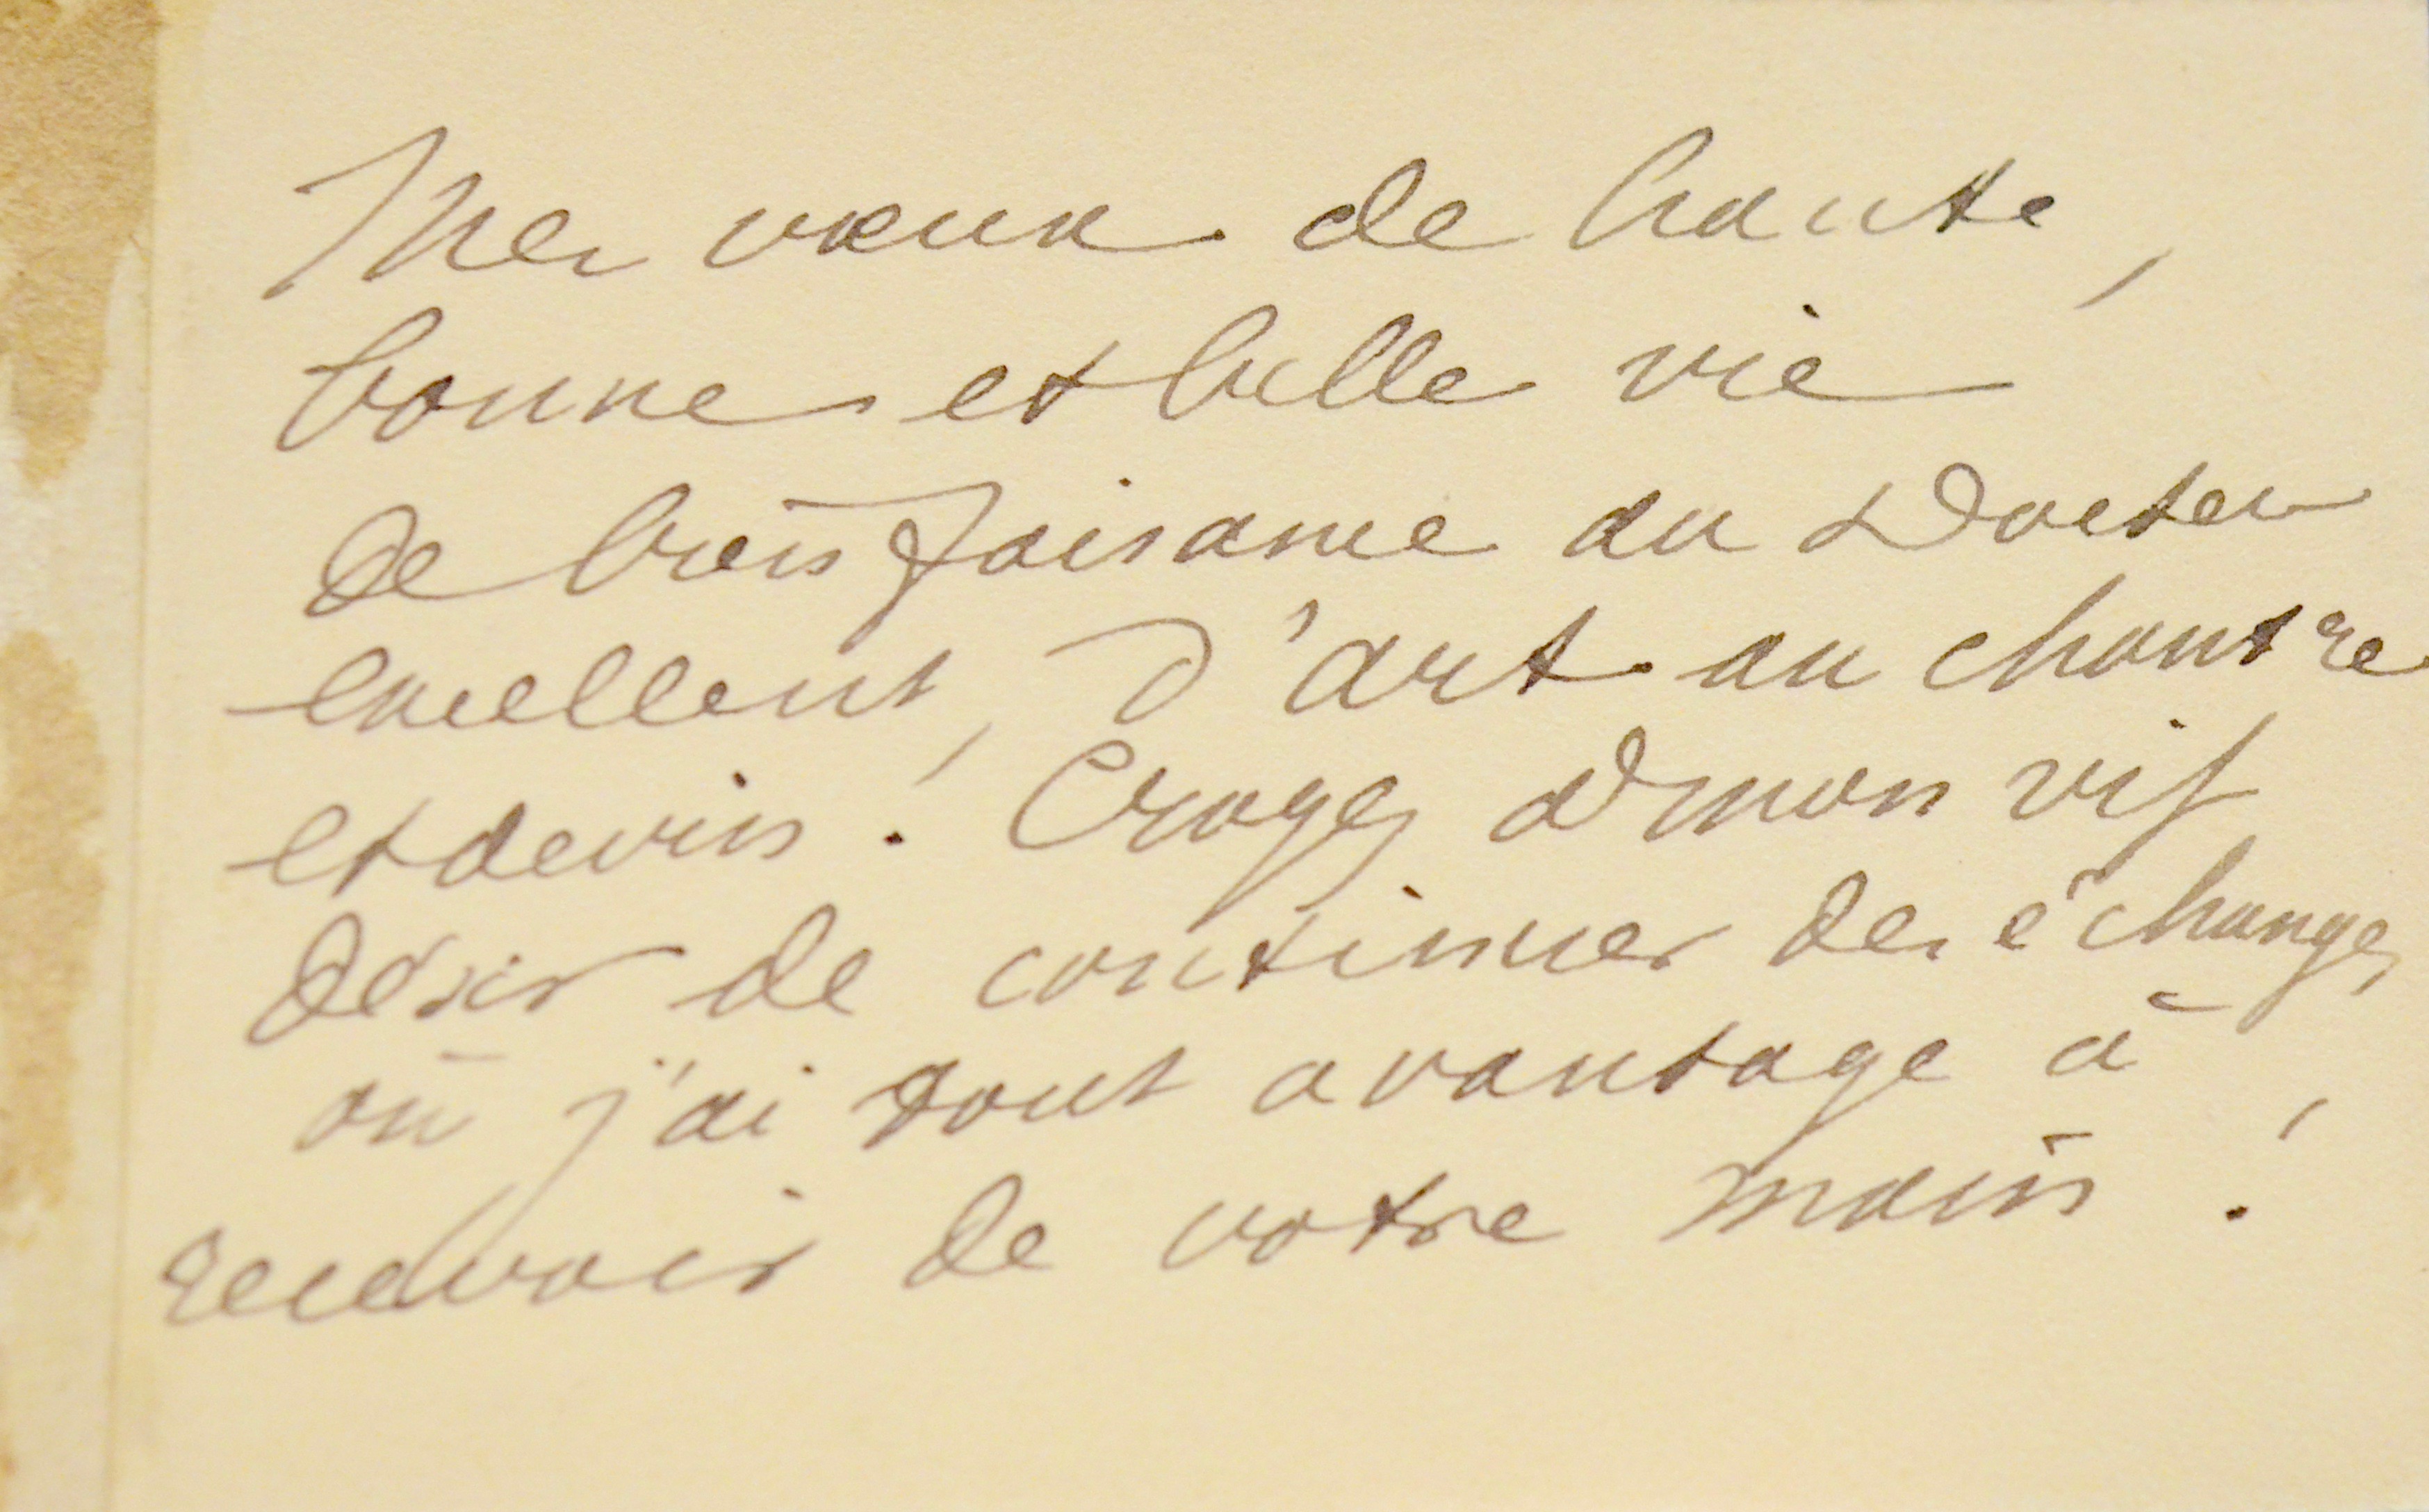 Mes vœux de haute,
bonne et belle vie
de bienfaisance au Docteur
excellent, d'art au chantre
et devin ! Croyez à mon vif
désir de continuer des échanges
où j'ai tout avantage à
recevoir de votre main !